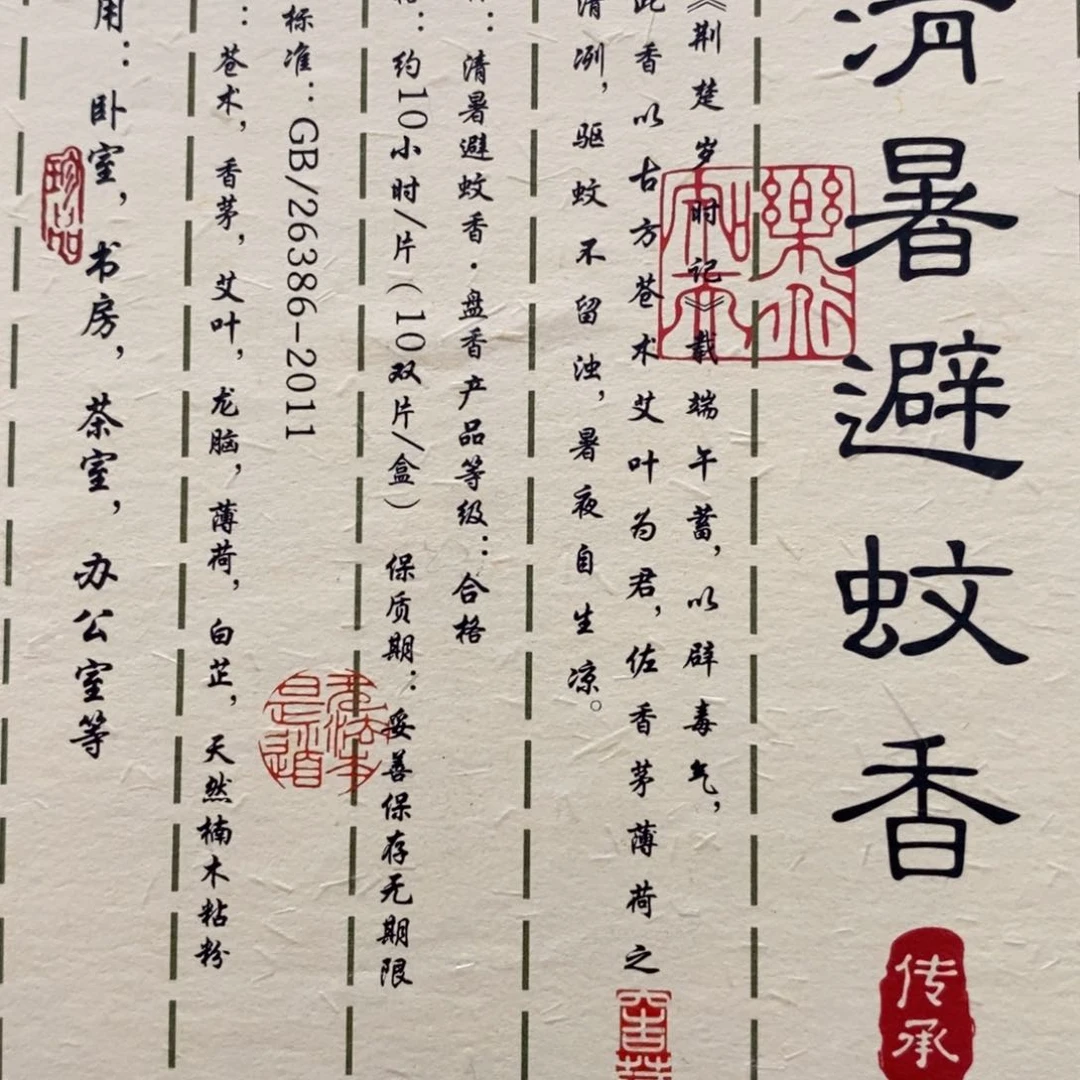 清暑避蚊香
传承
《荆楚岁时记》载端午蓄，以辟毒气，
此香以古方苍术艾叶为君，佐香茅薄荷之
清冽，驱蚊不留浊，暑夜自生凉。
：清暑避蚊香·盘香产品等级：合格
：约10小时/片（10双片/盒） 保质期：妥善保存无期限
标准：GB/26386-2011
：苍术，香茅，艾叶，龙脑，薄荷，白芷，天然楠木粘粉
用：卧室，书房，茶室，办公室等
珍品